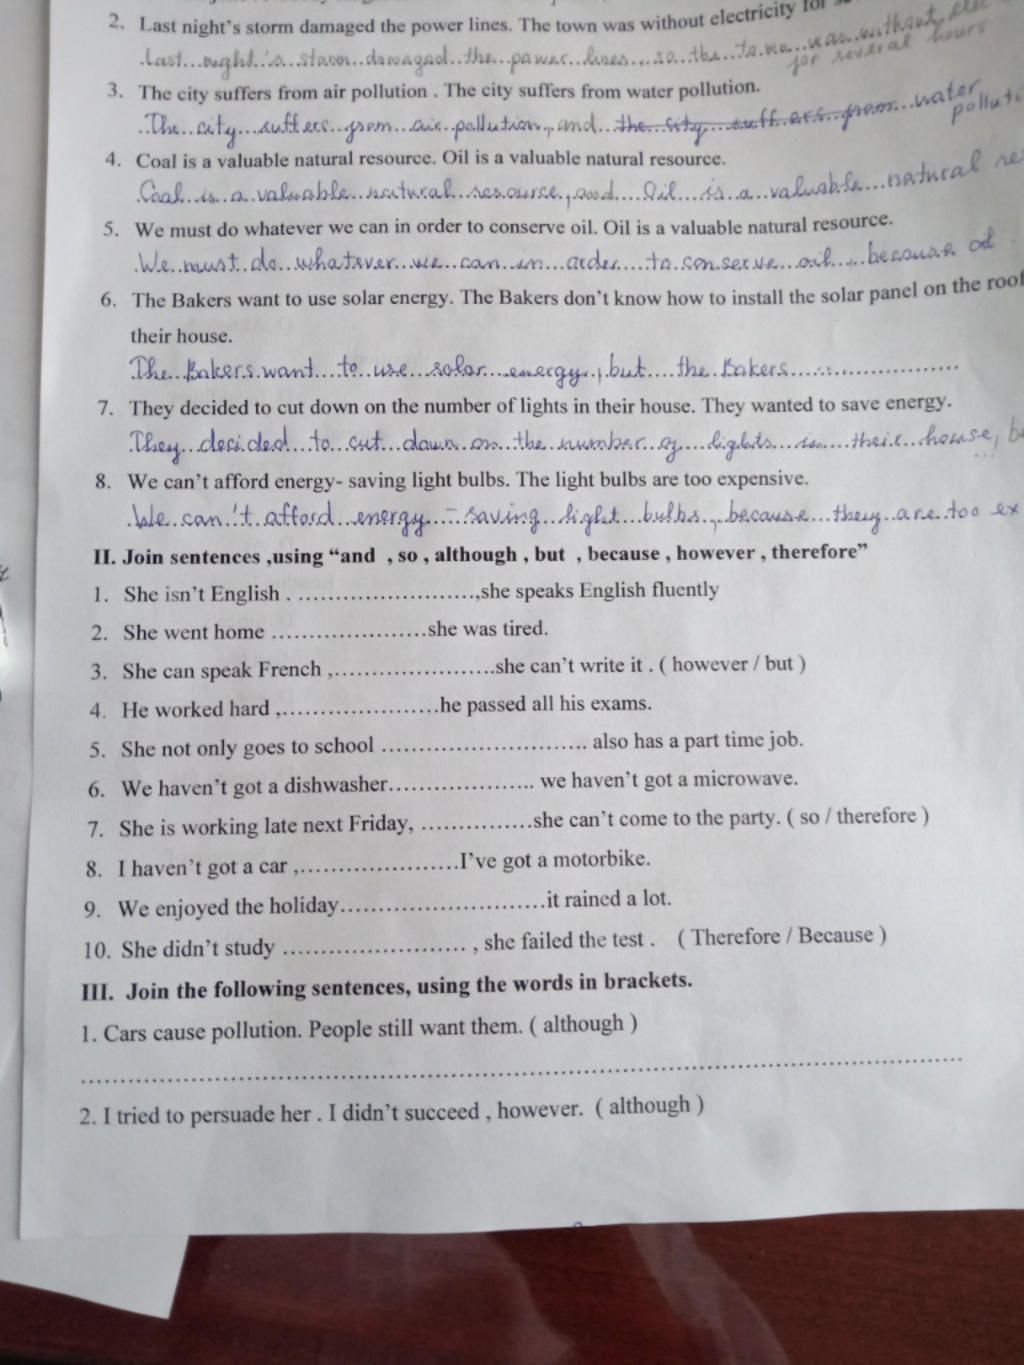 2. Last night's storm damaged the power lines. The town was without electricity for
Last night's storm damaged the power lines, so the town was without elec
for several hours
3. The city suffers from air pollution . The city suffers from water pollution.
The city suffers from air pollution, and the city suffers from water
polluti
4. Coal is a valuable natural resource. Oil is a valuable natural resource.
Coal is a valuable natural resource, and Oil is a valuable natural re
5. We must do whatever we can in order to conserve oil. Oil is a valuable natural resource.
We must do whatever we can in order to conserve oil, because oil
6. The Bakers want to use solar energy. The Bakers don't know how to install the solar panel on the roof
their house.
The Bakers want to use solar energy, but the Bakers ..................
7. They decided to cut down on the number of lights in their house. They wanted to save energy.
They decided to cut down on the number of lights in their house, be
8. We can't afford energy- saving light bulbs. The light bulbs are too expensive.
We can't afford energy - saving light bulbs, because they are too ex
II. Join sentences ,using "and , so , although , but , because , however , therefore"
1. She isn't English . .......................,she speaks English fluently
2. She went home ....................she was tired.
3. She can speak French ,.....................she can't write it . ( however / but )
4. He worked hard ,....................he passed all his exams.
5. She not only goes to school .......................... also has a part time job.
6. We haven't got a dishwasher................... we haven't got a microwave.
7. She is working late next Friday, ..............she can't come to the party. ( so / therefore )
8. I haven't got a car ,....................I've got a motorbike.
9. We enjoyed the holiday..........................it rained a lot.
10. She didn't study ....................... , she failed the test . ( Therefore / Because )
III. Join the following sentences, using the words in brackets.
1. Cars cause pollution. People still want them. ( although )
................................................................................
2. I tried to persuade her . I didn't succeed , however. ( although )